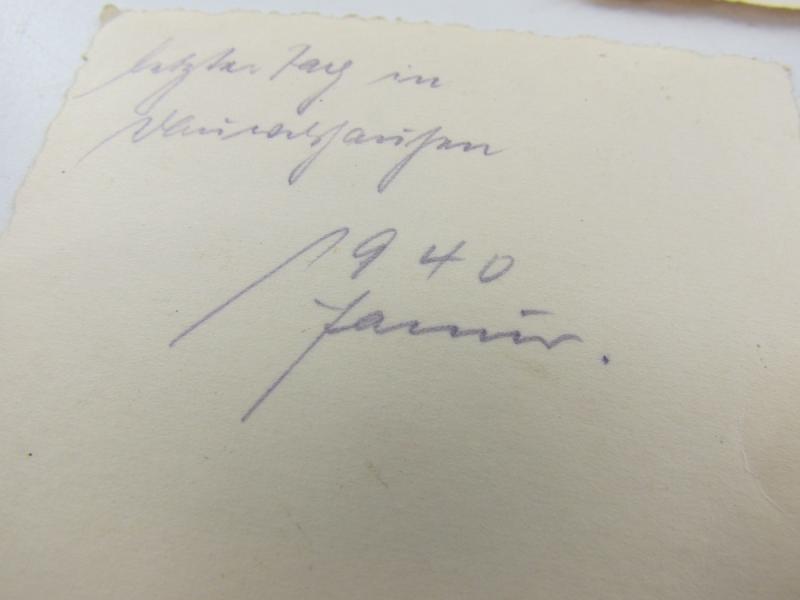 letzter Tag in
1940
Januar.